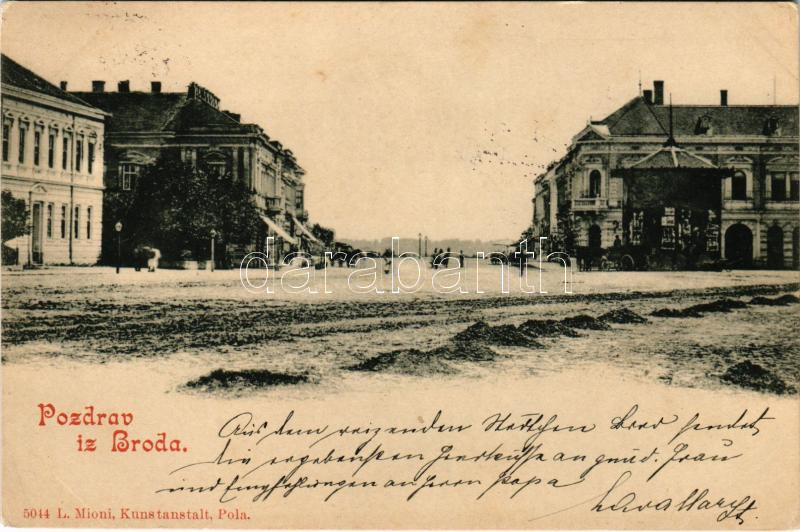 darabanth.com
Pozdrav
iz Broda.
Aus dem reizenden Städtchen Brod sendet
die ergebensten Handküsse an gnäd. Frau
und Empfehlungen an Herrn Papa
5044 L. Mioni, Kunstanstalt, Pola.